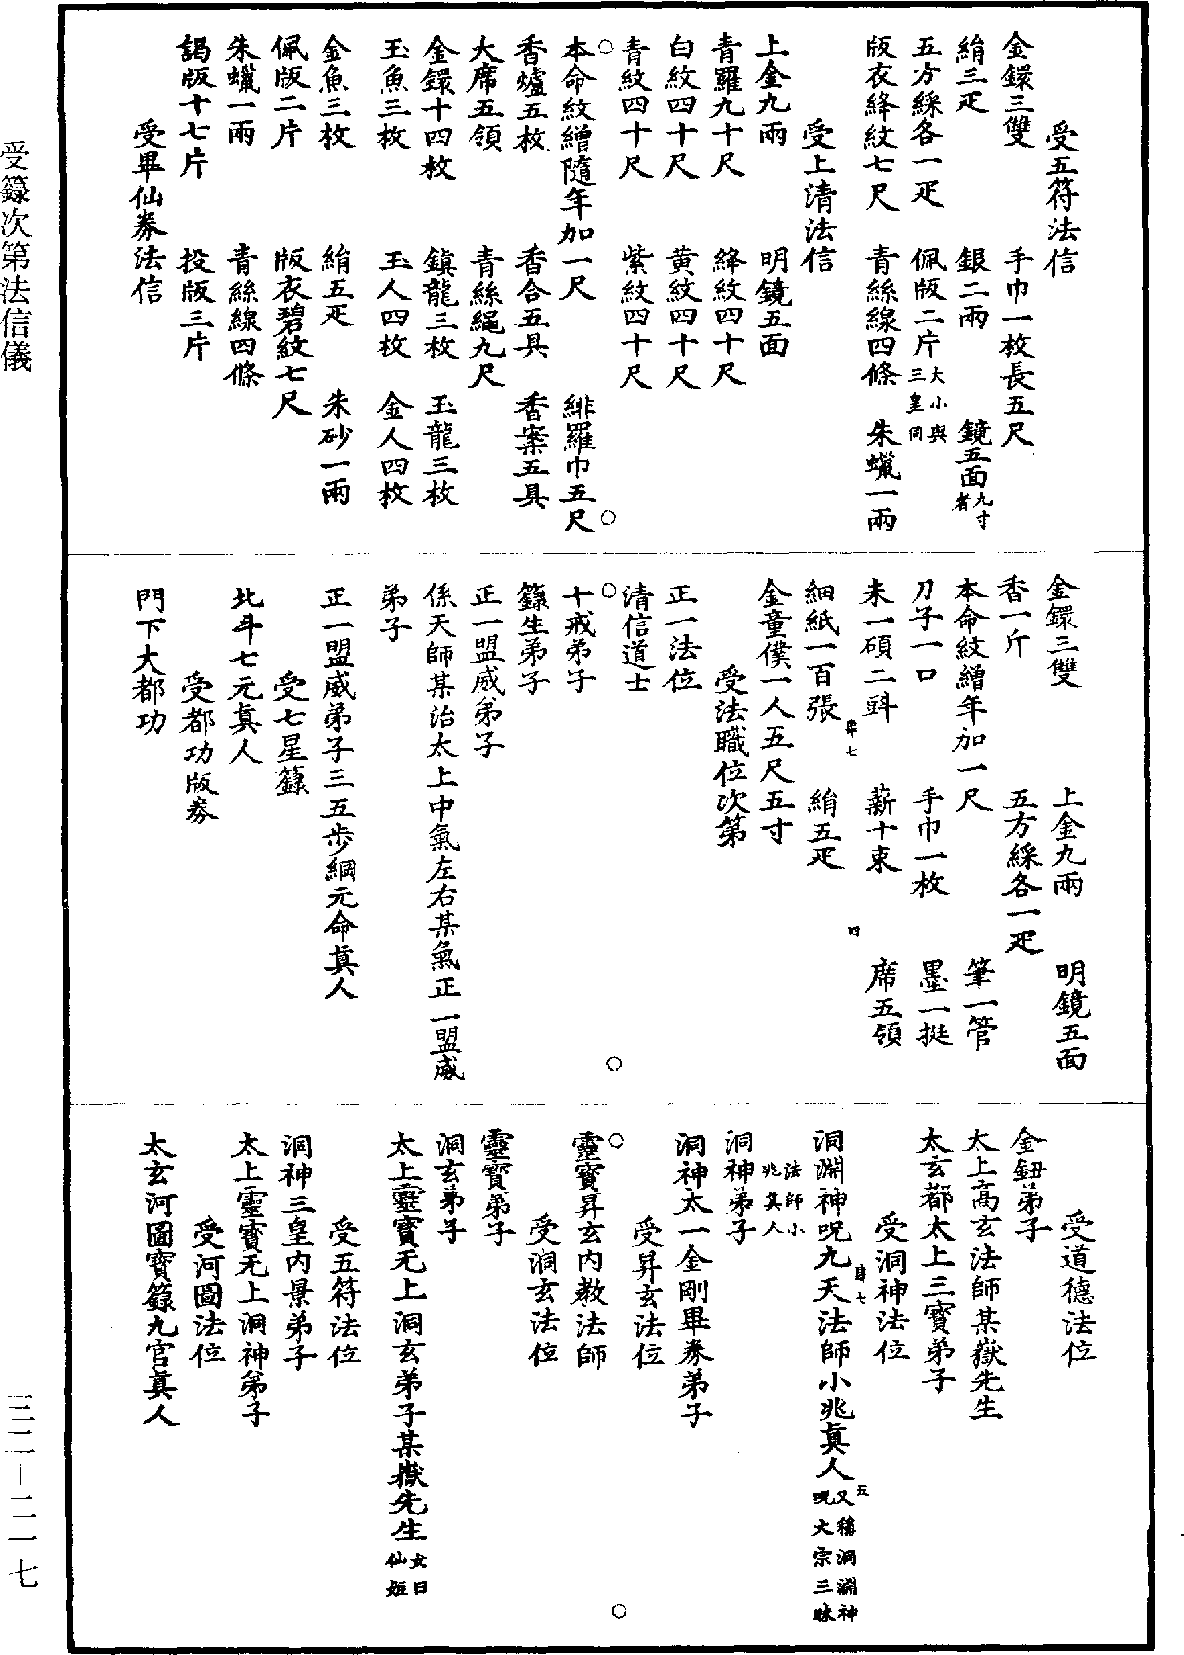 受五符法信
金鐶三雙　手巾一枚長五尺
絹三疋　銀二兩　鏡五面九寸者
五方綵各一疋　佩版二片大小與三皇同
版衣絳紋七尺　青絲線四條　朱蠟一兩
受上清法信
上金九兩　明鏡五面
青羅九十尺　絳紋四十尺
白紋四十尺　黃紋四十尺
青紋四十尺　紫紋四十尺
本命紋繒隨年加一尺　緋羅巾五尺
香爐五枚　香合五具　香案五具
大席五領　青絲繩九尺
金鐶十四枚　鎮龍三枚　玉龍三枚
玉魚三枚　玉人四枚　金人四枚
金魚三枚　絹五疋　朱砂一兩
佩版二片　版衣碧紋七尺
朱蠟一兩　青絲線四條
謁版十七片　投版三片
受畢仙券法信
金鐶三雙　上金九兩　明鏡五面
香一斤　五方綵各一疋
本命紋繒年加一尺　筆一管
刀子一口　手巾一枚　墨一挺
米一碩二㪷　薪十束　席五領
細紙一百張　絹五疋
金童僕一人五尺五寸
受法職位次第
正一法位
清信道士
十戒弟子
籙生弟子
正一盟威弟子
係天師某治太上中氣左右某氣正一盟威
弟子
正一盟威弟子三五步綱元命真人
受七星籙
北斗七元真人
受都功版券
門下大都功
受道德法位
金鈕弟子
太上高玄法師某嶽先生
太玄都太上三寶弟子
受洞神法位
洞淵神呪九天法師小兆真人又稱洞淵神呪大宗三昧
法師小兆真人
洞神弟子
洞神太一金剛畢券弟子
受昇玄法位
靈寶昇玄内教法師
受洞玄法位
靈寶弟子
洞玄弟子
太上靈寶无上洞玄弟子某嶽先生女曰仙姬
受五符法位
洞神三皇内景弟子
太上靈寶无上洞神弟子
受河圖法位
太玄河圖寶籙九官真人
受籙次第法信儀
三二—二一七